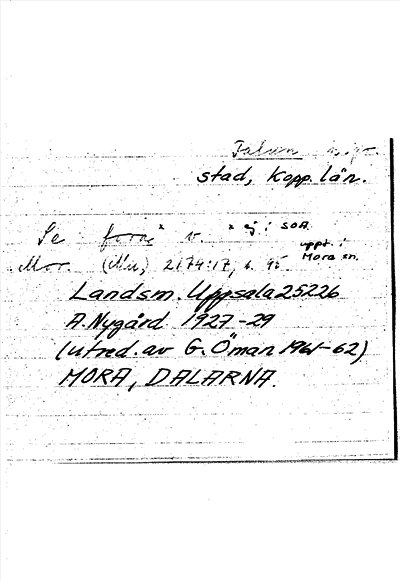 Falun
stad, Kopp. län.
Se fora* v. * ej i SOA.
uppt. i
Mora sn.
Mor. 2174:17, s. 95
Landsm. Uppsala 25226
A. Nygård 1927-29
(utred. av G. Öman 1961-62)
MORA, DALARNA.